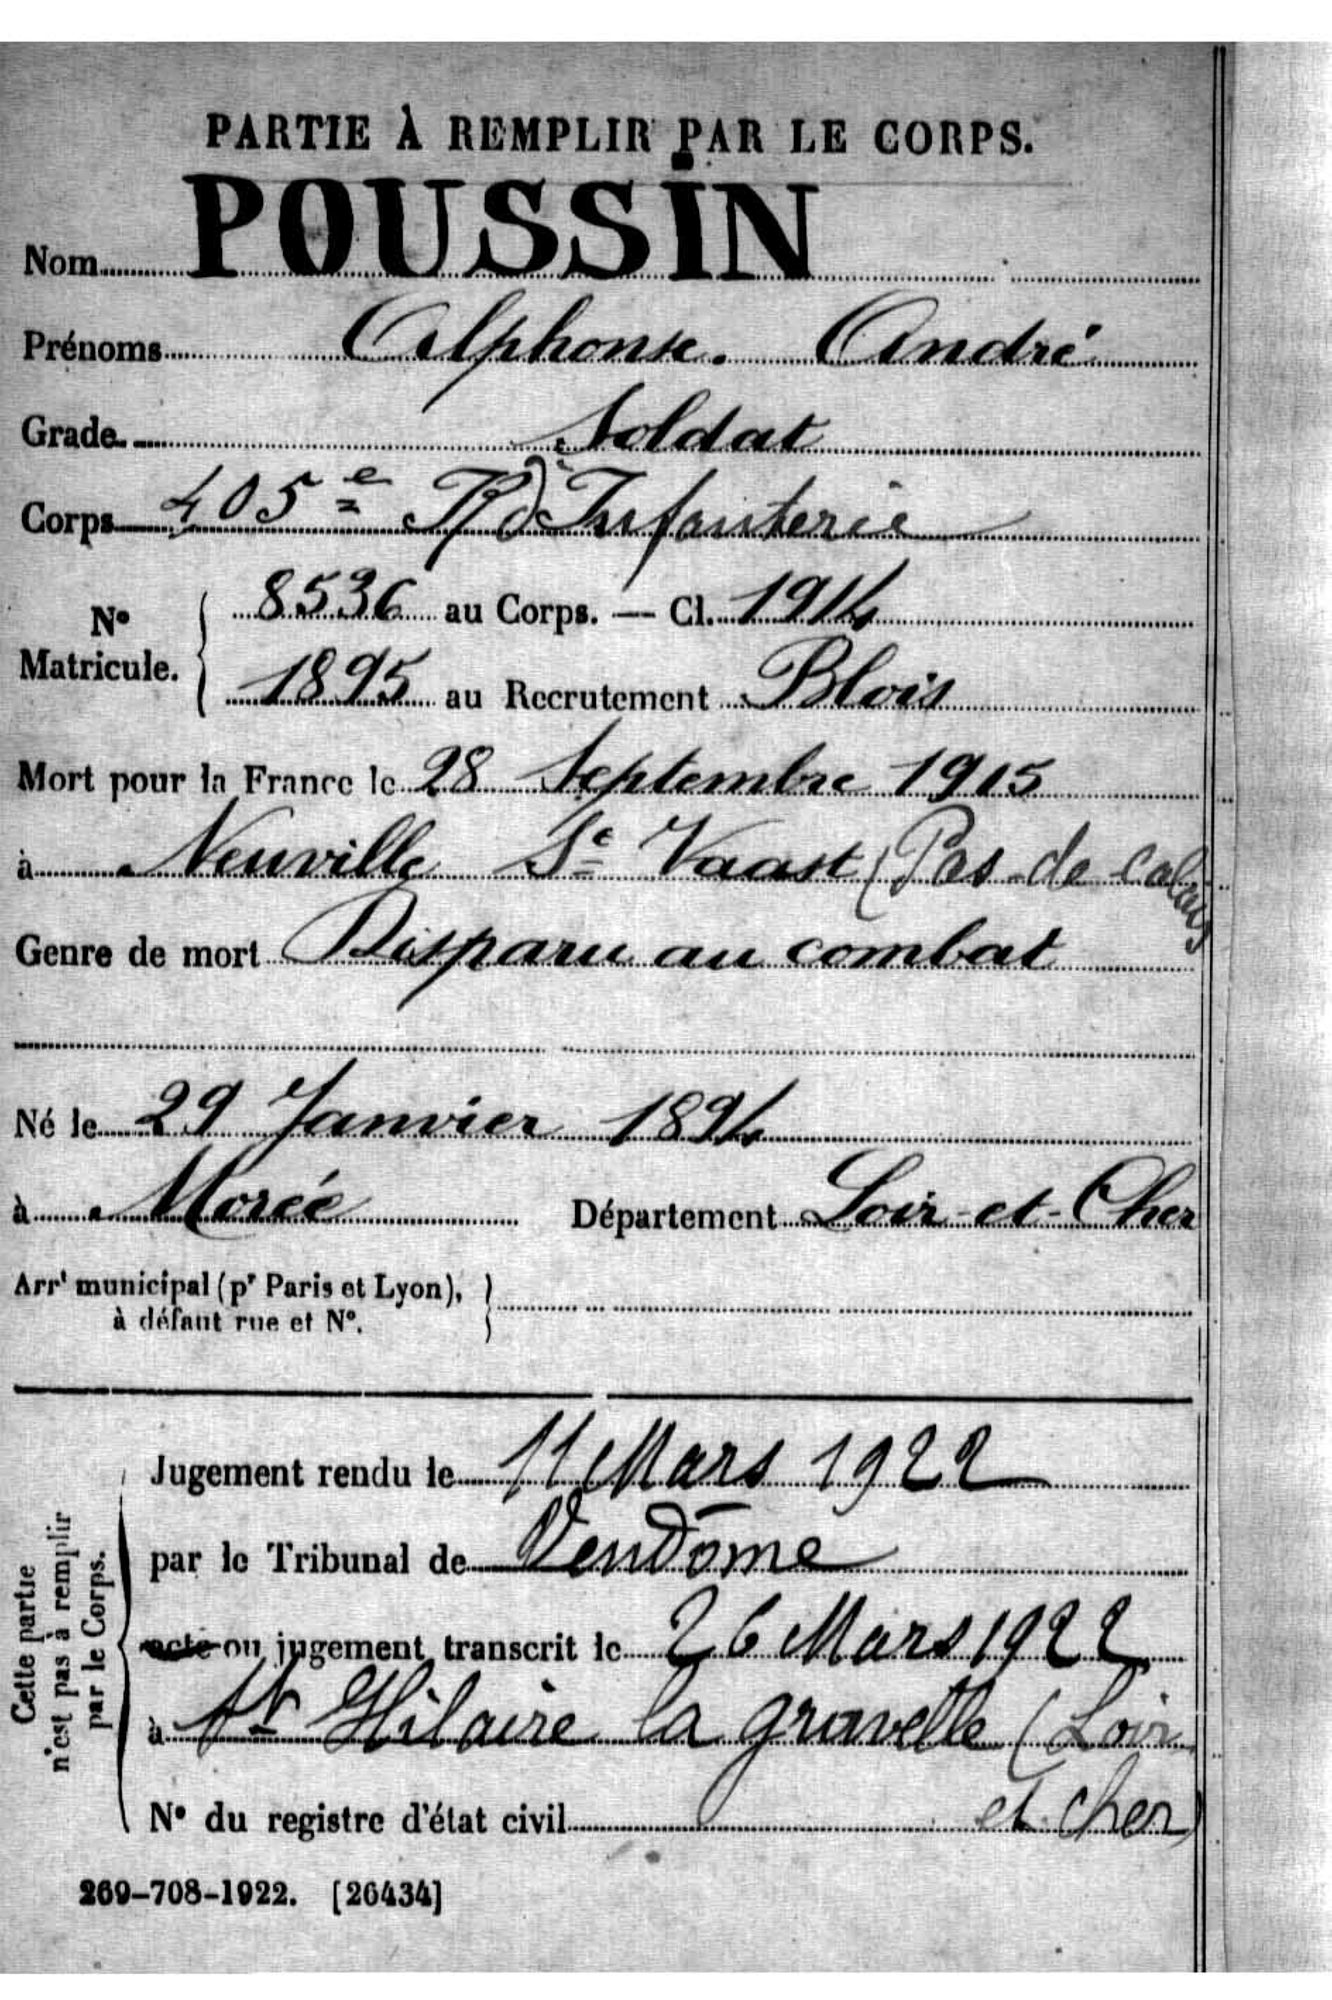 PARTIE À REMPLIR PAR LE CORPS.
Nom POUSSIN
Prénoms Alphonse. André
Grade Soldat
Corps 405e R d'Infanterie
No Matricule. { 8536 au Corps. — Cl. 1914
1895 au Recrutement Blois
Mort pour la France le 28 Septembre 1915
à Neuville St Vaast (Pas-de Calais
Genre de mort Disparu au combat
Né le 29 Janvier 1894
à Morée Département Loir-et-Cher
Arrt municipal (pr Paris et Lyon),
à défaut rue et No. }
Cette partie
n'est pas à remplir
par le Corps.
Jugement rendu le 11 Mars 1922
par le Tribunal de Vendôme
acte ou jugement transcrit le 26 Mars 1922
à St Hilaire la gravelle (Loir
et Cher)
No du registre d'état civil
269-708-1922. [26434]